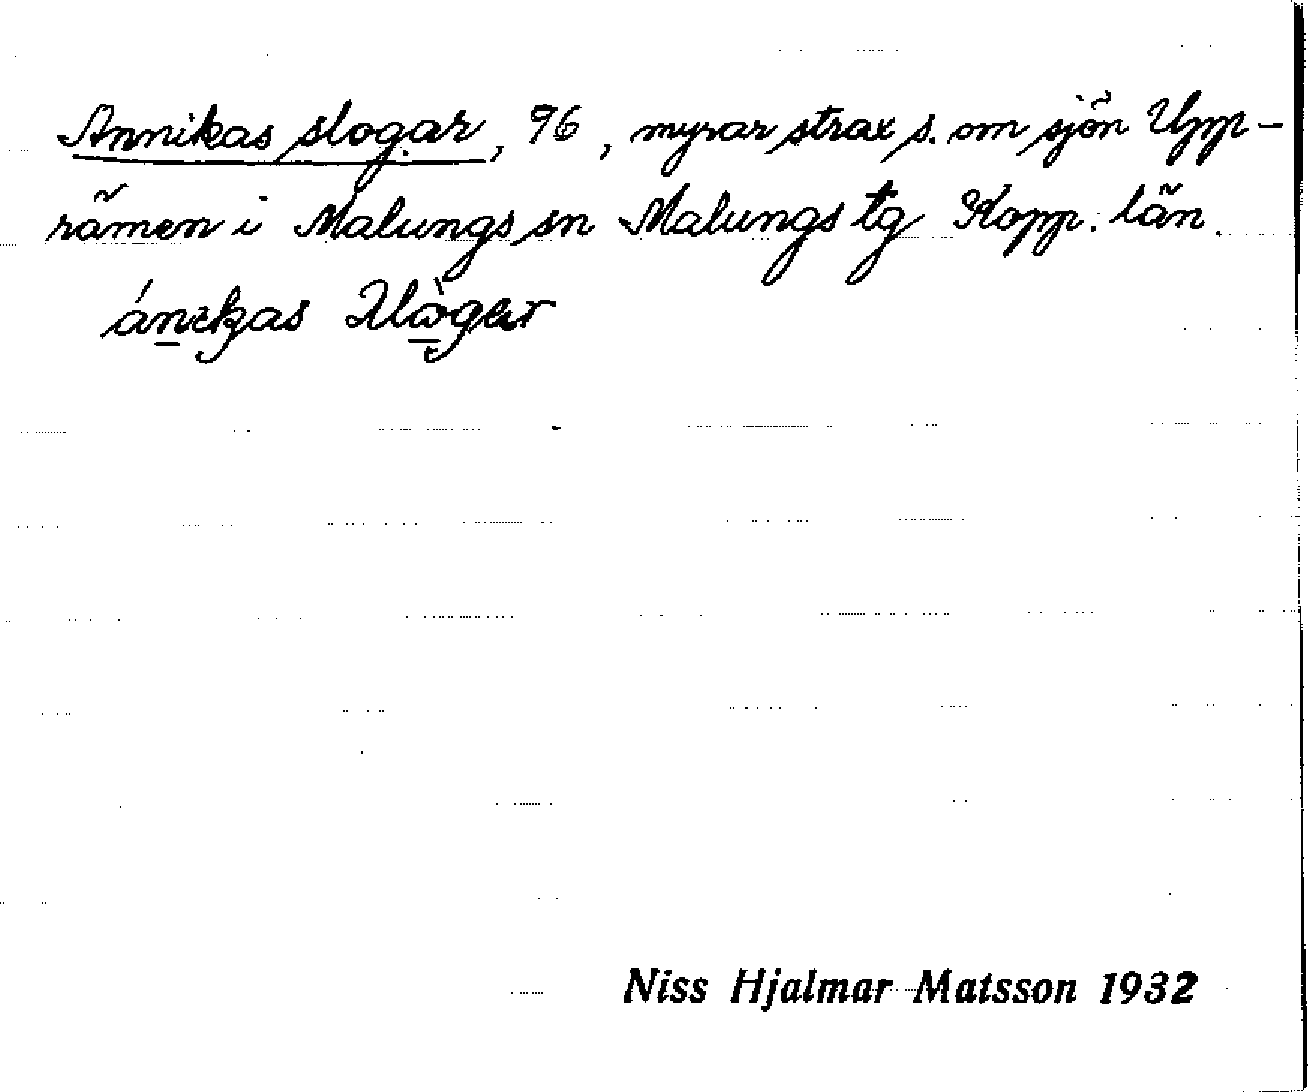 Annikas slogar, 96, myrar strax s. om sjön Upp-
rämen i Malungs sn Malungs tg Kopp. län.
Niss Hjalmar Matsson 1932